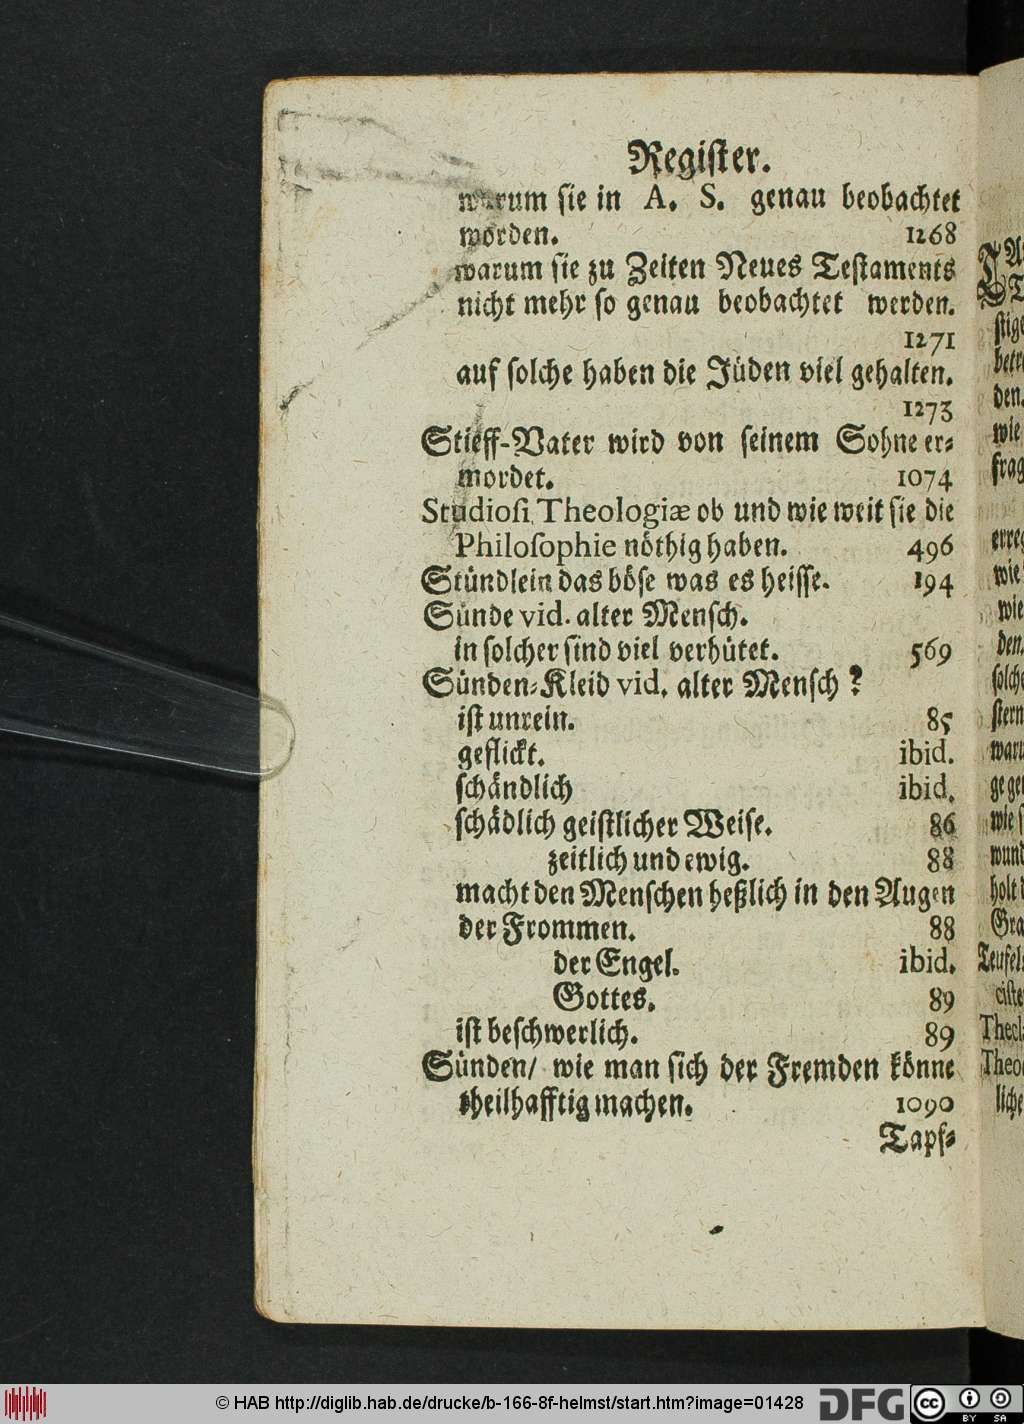 Register.
warum sie in A. S. genau beobachtet
worden. 1268
warum sie zu Zeiten Neues Testaments
nicht mehr so genau beobachtet werden.
1271
auf solche haben die Jüden viel gehalten.
1273
Stieff-Vater wird von seinem Sohne er-
mordet. 1074
Studiosi Theologiæ ob und wie weit sie die
Philosophie nöthig haben. 496
Stündlein das böse was es heisse. 194
Sünde vid. alter Mensch.
in solcher sind viel verhütet. 569
Sünden-Kleid vid. alter Mensch?
ist unrein. 85
geflickt. ibid.
schändlich ibid.
schädlich geistlicher Weise. 86
zeitlich und ewig. 88
macht den Menschen heßlich in den Augen
der Frommen. 88
der Engel. ibid.
Gottes. 89
ist beschwerlich. 89
Sünden/ wie man sich der Fremden könne
theilhafftig machen. 1090
Tapf-
stige
den.
wie
frag
erreg
wie
wie
den.
solche
stern
waru
gegen
wie s
wund
holt d
Gra
Teufels
ciste
Theol
Theo
liche
© HAB http://diglib.hab.de/drucke/b-166-8f-helmst/start.htm?image=01428
DFG
cc BY SA